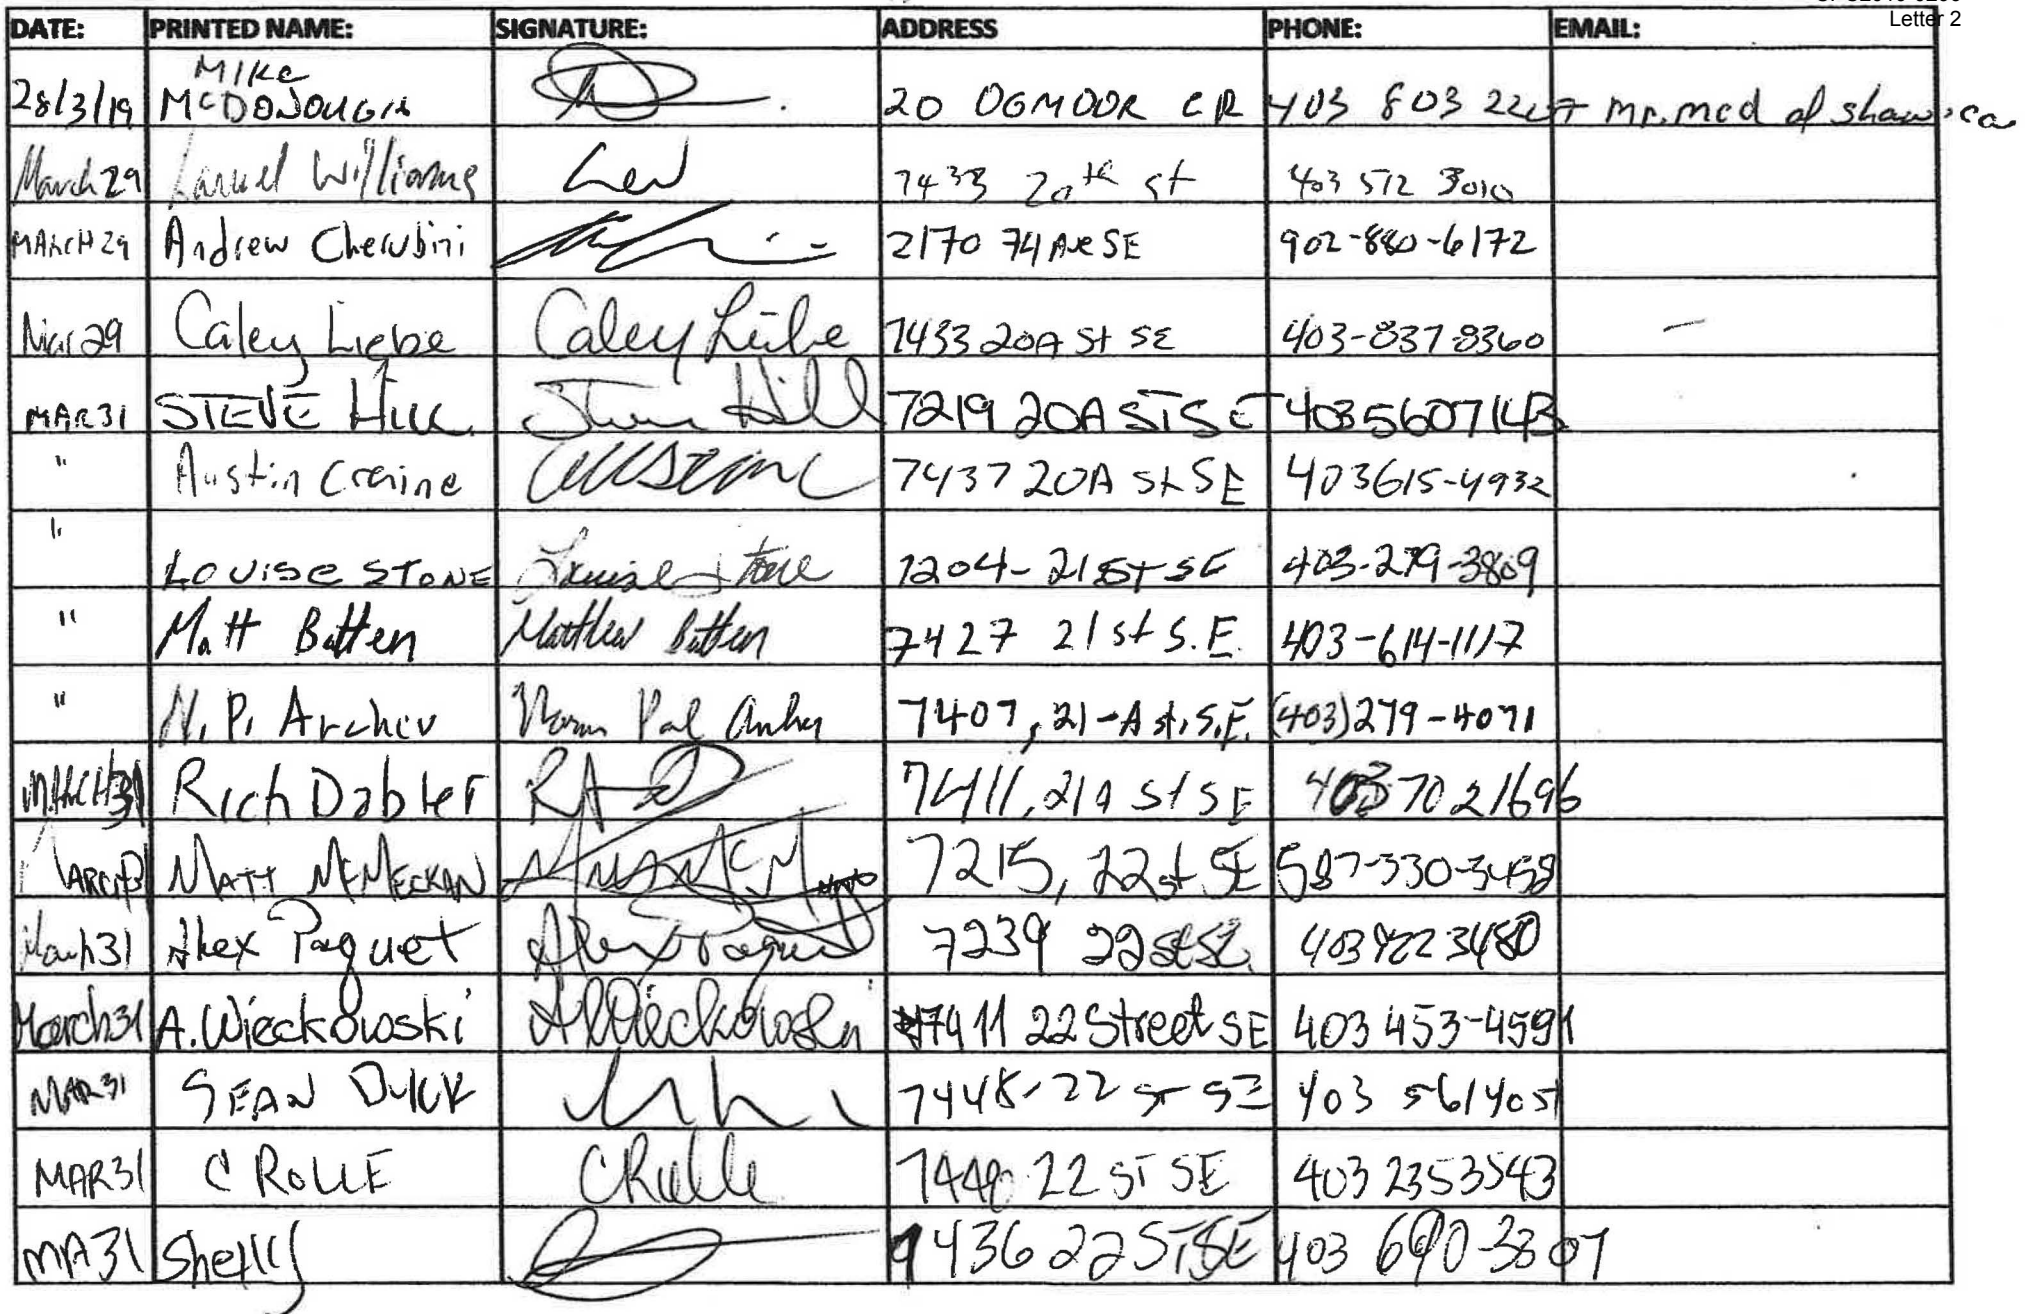 Letter 2
DATE: PRINTED NAME: SIGNATURE: ADDRESS PHONE: EMAIL:
28/3/19 MIKE MCDONOUGH 20 OGMOOR CR 403 803
March 29 Williams 7433 20th st 403 512 3010
MARCH 29 Andrew Cherubini 2170 74 Ave SE 902-880-6172
Mar 29 Caley Liebe Caley Liebe 7433 20A St SE 403-837-8360
MAR 31 STEVE HILL Steve Hill 7219 20A ST SE 4035607143
" Austin Craine 7437 20A St SE 403615-4932
" LOUISE STONE Louise Stone 7204-21 ST SE 403-279-3809
" Matt Batten Matthew Batten 7427 21 st S.E. 403-614-1117
" N. P. Archer 7407, 21-A st. S.E. (403)279-4071
MARCH 31 Rich Dabler 7411, 21A St SE 403 70 21696
MARCH 31 MATT MCMECKAN 7215, 22 st SE 587-330-3458
March 31 Alex Paquet Alex Paquet 7239 22 st SE
March 31 A. Wieckowski A Wieckowski 7411 22 Street SE 403 453-4591
MAR 31 SEAN DYCK 7448-22 ST SE 403 561 4051
MAR 31 C ROLLE C Rolle 22 ST SE 403 2353543
MA 31 Shelly 7436 22 ST SE 403 690-3807